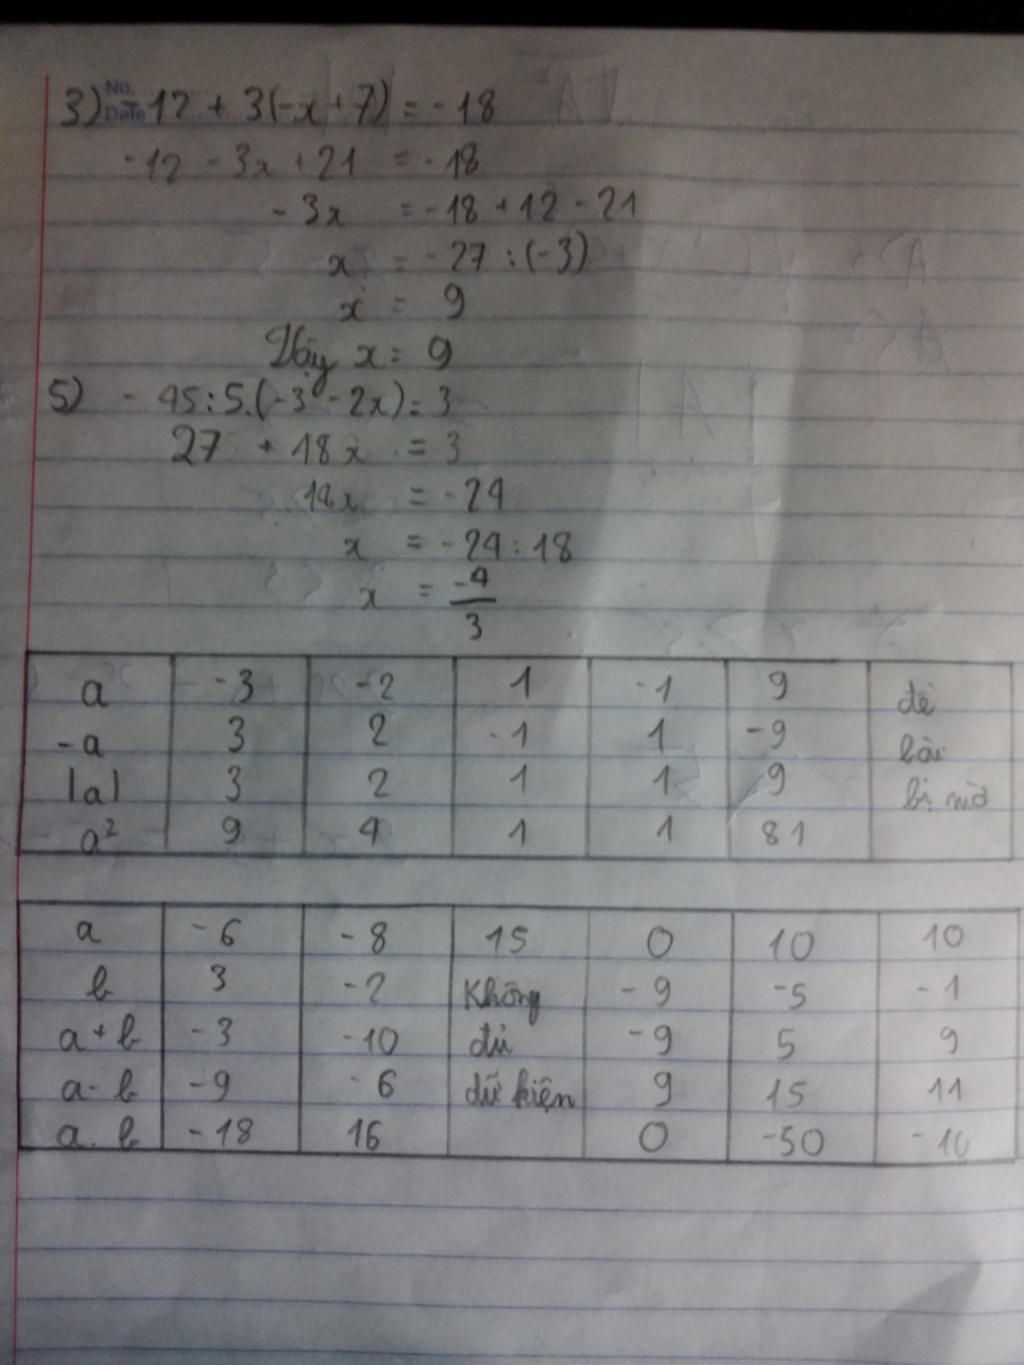 No.
Date
3) -12 + 3(-x + 7) = -18
-12 - 3x + 21 = -18
-3x = -18 + 12 - 21
x = -27 : (-3)
x = 9
Vậy x = 9
5) - 45 : 5.(-3 - 2x) = 3
27 + 18x = 3
18x = -24
x = -24 : 18
x = -4/3
a -3 -2 1 -1 9 đề
-a 3 2 -1 1 -9 bài
|a| 3 2 1 1 9 bị mờ
a² 9 4 1 1 81
a -6 -8 15 0 10 10
b 3 -2 Không -9 -5 -1
a + b -3 -10 đủ -9 5 9
a - b -9 -6 dữ kiện 9 15 11
a . b -18 16 0 -50 -10